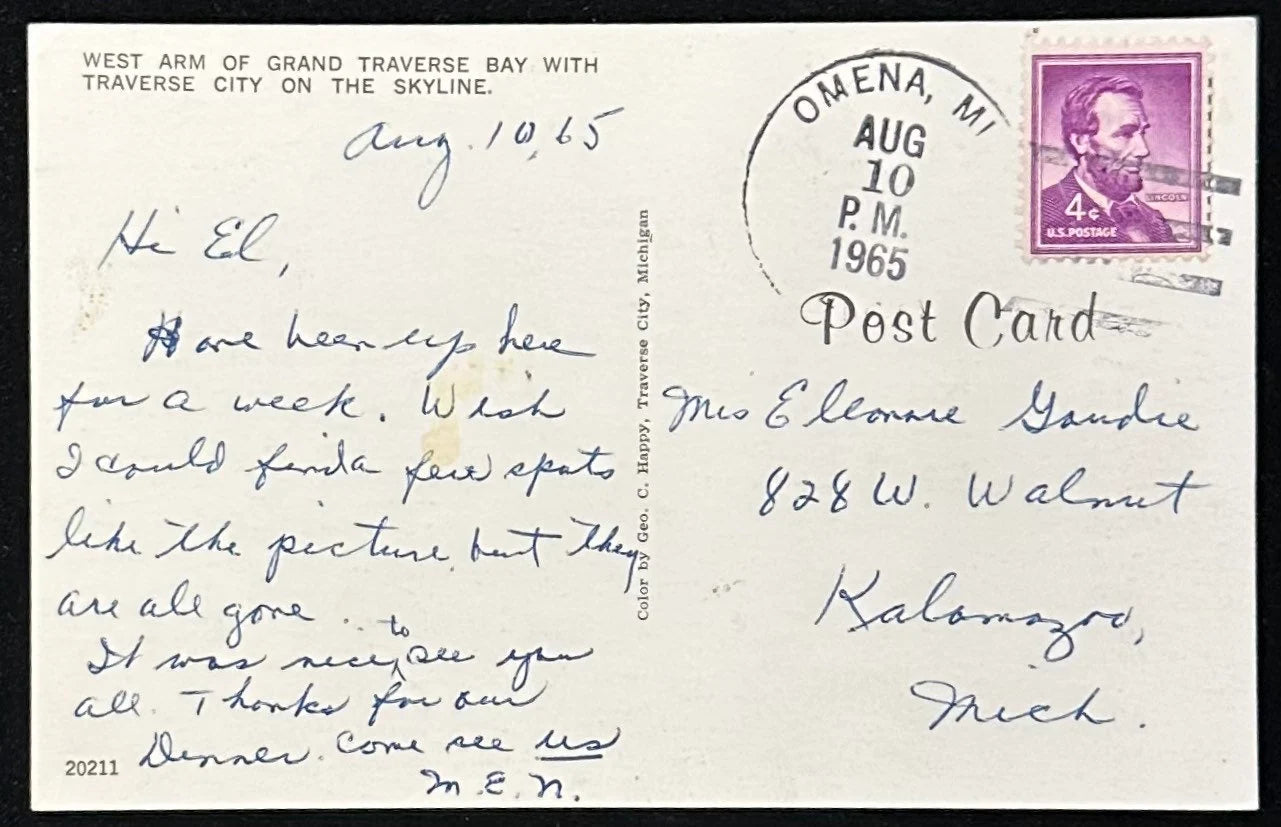 WEST ARM OF GRAND TRAVERSE BAY WITH
TRAVERSE CITY ON THE SKYLINE.
Aug. 10, 65
Hi El,
Have been up here
for a week. Wish
I could find a few spots
like the picture, but they
are all gone.
It was nice, to see you
all. Thanks for our
Dinner. Come see us
M.E.N.
20211
Color by Geo. C. Happy, Traverse City, Michigan
OMENA, MI
AUG
10
P.M.
1965
LINCOLN
4¢
U.S. POSTAGE
Post Card
Mrs Elleonore Goudie
828 W. Walnut
Kalamazoo,
Mich.